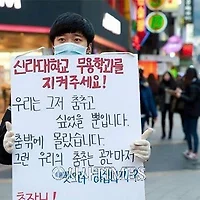 신라대학교 무용학과를
지켜주세요!
우리는 그저 춤추고
싶었을 뿐입니다.
춤밖에 몰랐습니다.
그런 우리의 춤추는 공간마저
총장님!